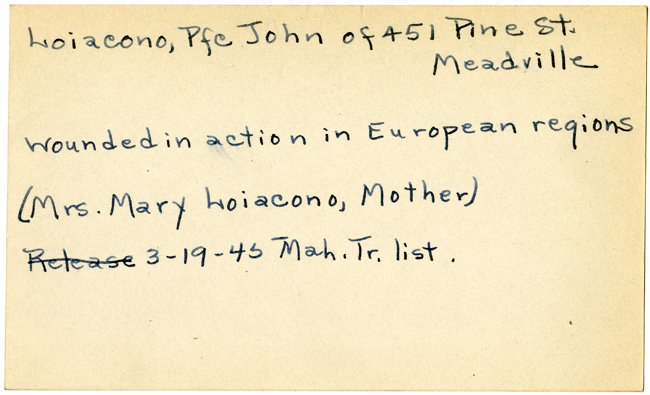 Loiacono, Pfc John of 451 Pine St.
Meadville
wounded in action in European regions
(Mrs. Mary Loiacono, Mother)
Release 3-19-45 Mah. Tr. list.